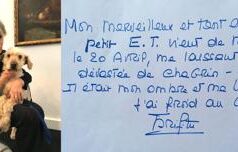 Mon merveilleux et tant a
petit E.T. vient de
le 20 Avril, me laissant
dévastée de chagrin -
Il était mon ombre et ma
j'ai froid au